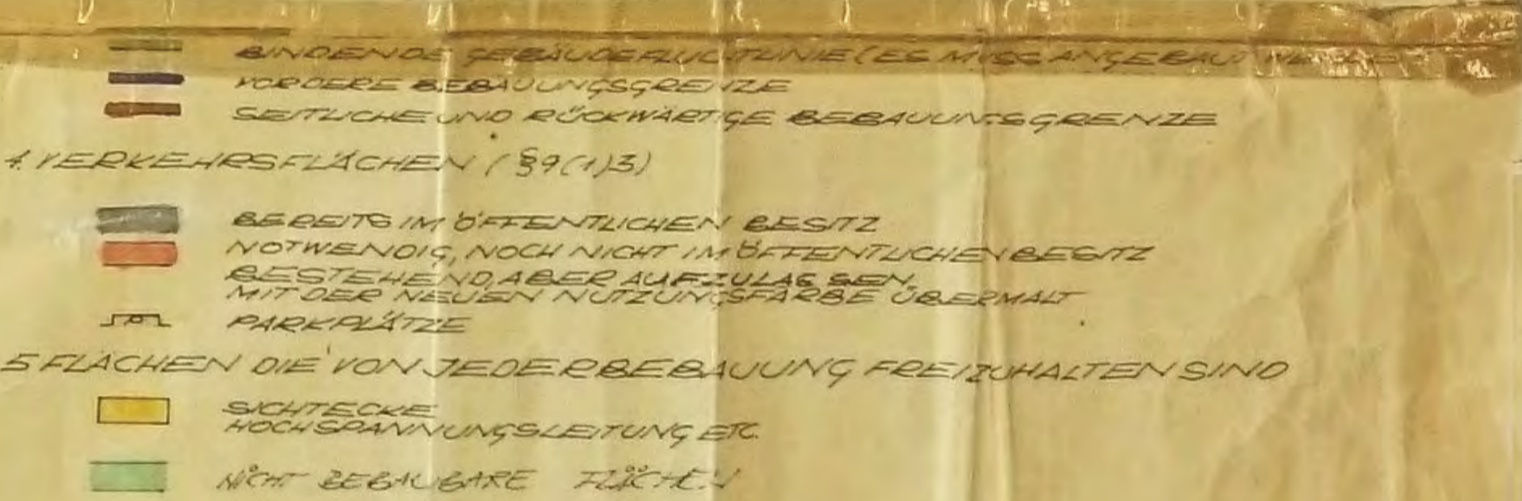 BINDENDE GEBÄUDEFLUCHTLINIE (ES MUSS ANGEBAUT
VORDERE BEBAUUNGSGRENZE
SEITLICHE UND RÜCKWÄRTIGE BEBAUUNGSGRENZE
4. VERKEHRSFLÄCHEN (§9(1)3)
BEREITS IM ÖFFENTLICHEN BESITZ
NOTWENDIG, NOCH NICHT IM ÖFFENTLICHEN BESITZ
BESTEHEND, ABER AUFZULASSEN,
MIT DER NEUEN NUTZUNGSFARBE ÜBERMALT
PARKPLÄTZE
5 FLÄCHEN DIE VON JEDER BEBAUUNG FREIZUHALTEN SIND
SICHTECKE
HOCHSPANNUNGSLEITUNG ETC.
NICHT BEBAUBARE FLÄCHEN